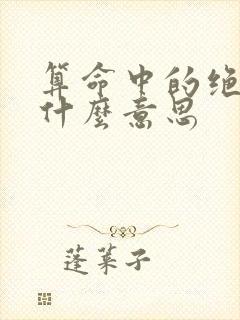 算命中的绝
什麽意思
蓬莱子